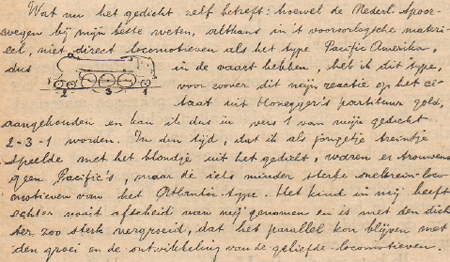 Wat nu het gedicht zelf betreft: hoewel de Nederl. Spoor-
wegen bij mijn beste weten, althans in 't vooroorlogsche materi-
eel, niet direct locomotieven als het type Pacific-Amerika,
dus in de vaart hebben, heb ik dit type,
voor zoover dit mijn reactie op het ci-
taat uit Honegger's partituur gold,
2 3 1
aangehouden en kan ik dus in vers 1 van mijn gedicht
2-3-1 worden. In den tijd, dat ik als jongetje treintje
speelde met het blondje uit het gedicht, waren er trouwens
geen Pacific's, maar de iets minder sterke sneltrein-loco-
motieven van het Atlantic-type. Het kind in mij heeft
echter nooit afscheid van mij genomen en is met den dich-
ter zoo sterk vergroeid, dat het parallel kon blijven met
den groei en de ontwikkeling van de geliefde locomotieven.